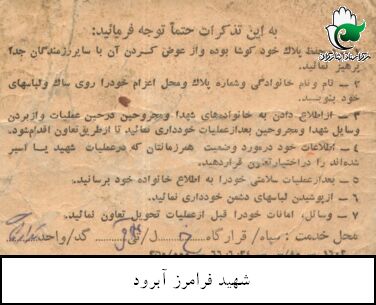 به این تذکرات حتماً توجه فرمائید:
حفظ پلاک خود کوشا بوده و از عوض کردن آن با سایر رزمندگان جداً
پرهیز نمائید.
۲ – نام و نام خانوادگی و شماره پلاک و محل اعزام خود را روی ساک و لباسهای
خود بنویسید.
۳ – از اطلاع دادن به خانواده‌های شهدا و مجروحین در حین عملیات و از بردن
وسایل شهدا و مجروحین بعد از عملیات خودداری نمائید تا از طریق تعاون اقدام شود.
۴ – اطلاعات خود در مورد وضعیت همرزمانتان که در عملیات شهید یا اسیر
شده‌اند را در اختیار تعاون قرار دهید.
۵ – بعد از عملیات سلامتی خود را به اطلاع خانواده خود برسانید.
۶ – از پوشیدن لباسهای دشمن خودداری نمائید.
۷ – وسائل، امانات خود را قبل از عملیات تحویل تعاون نمائید.
محل خدمت: سپاه/ قرارگاه ل/تیپ گد/واحد
شهید فرامرز آبرود